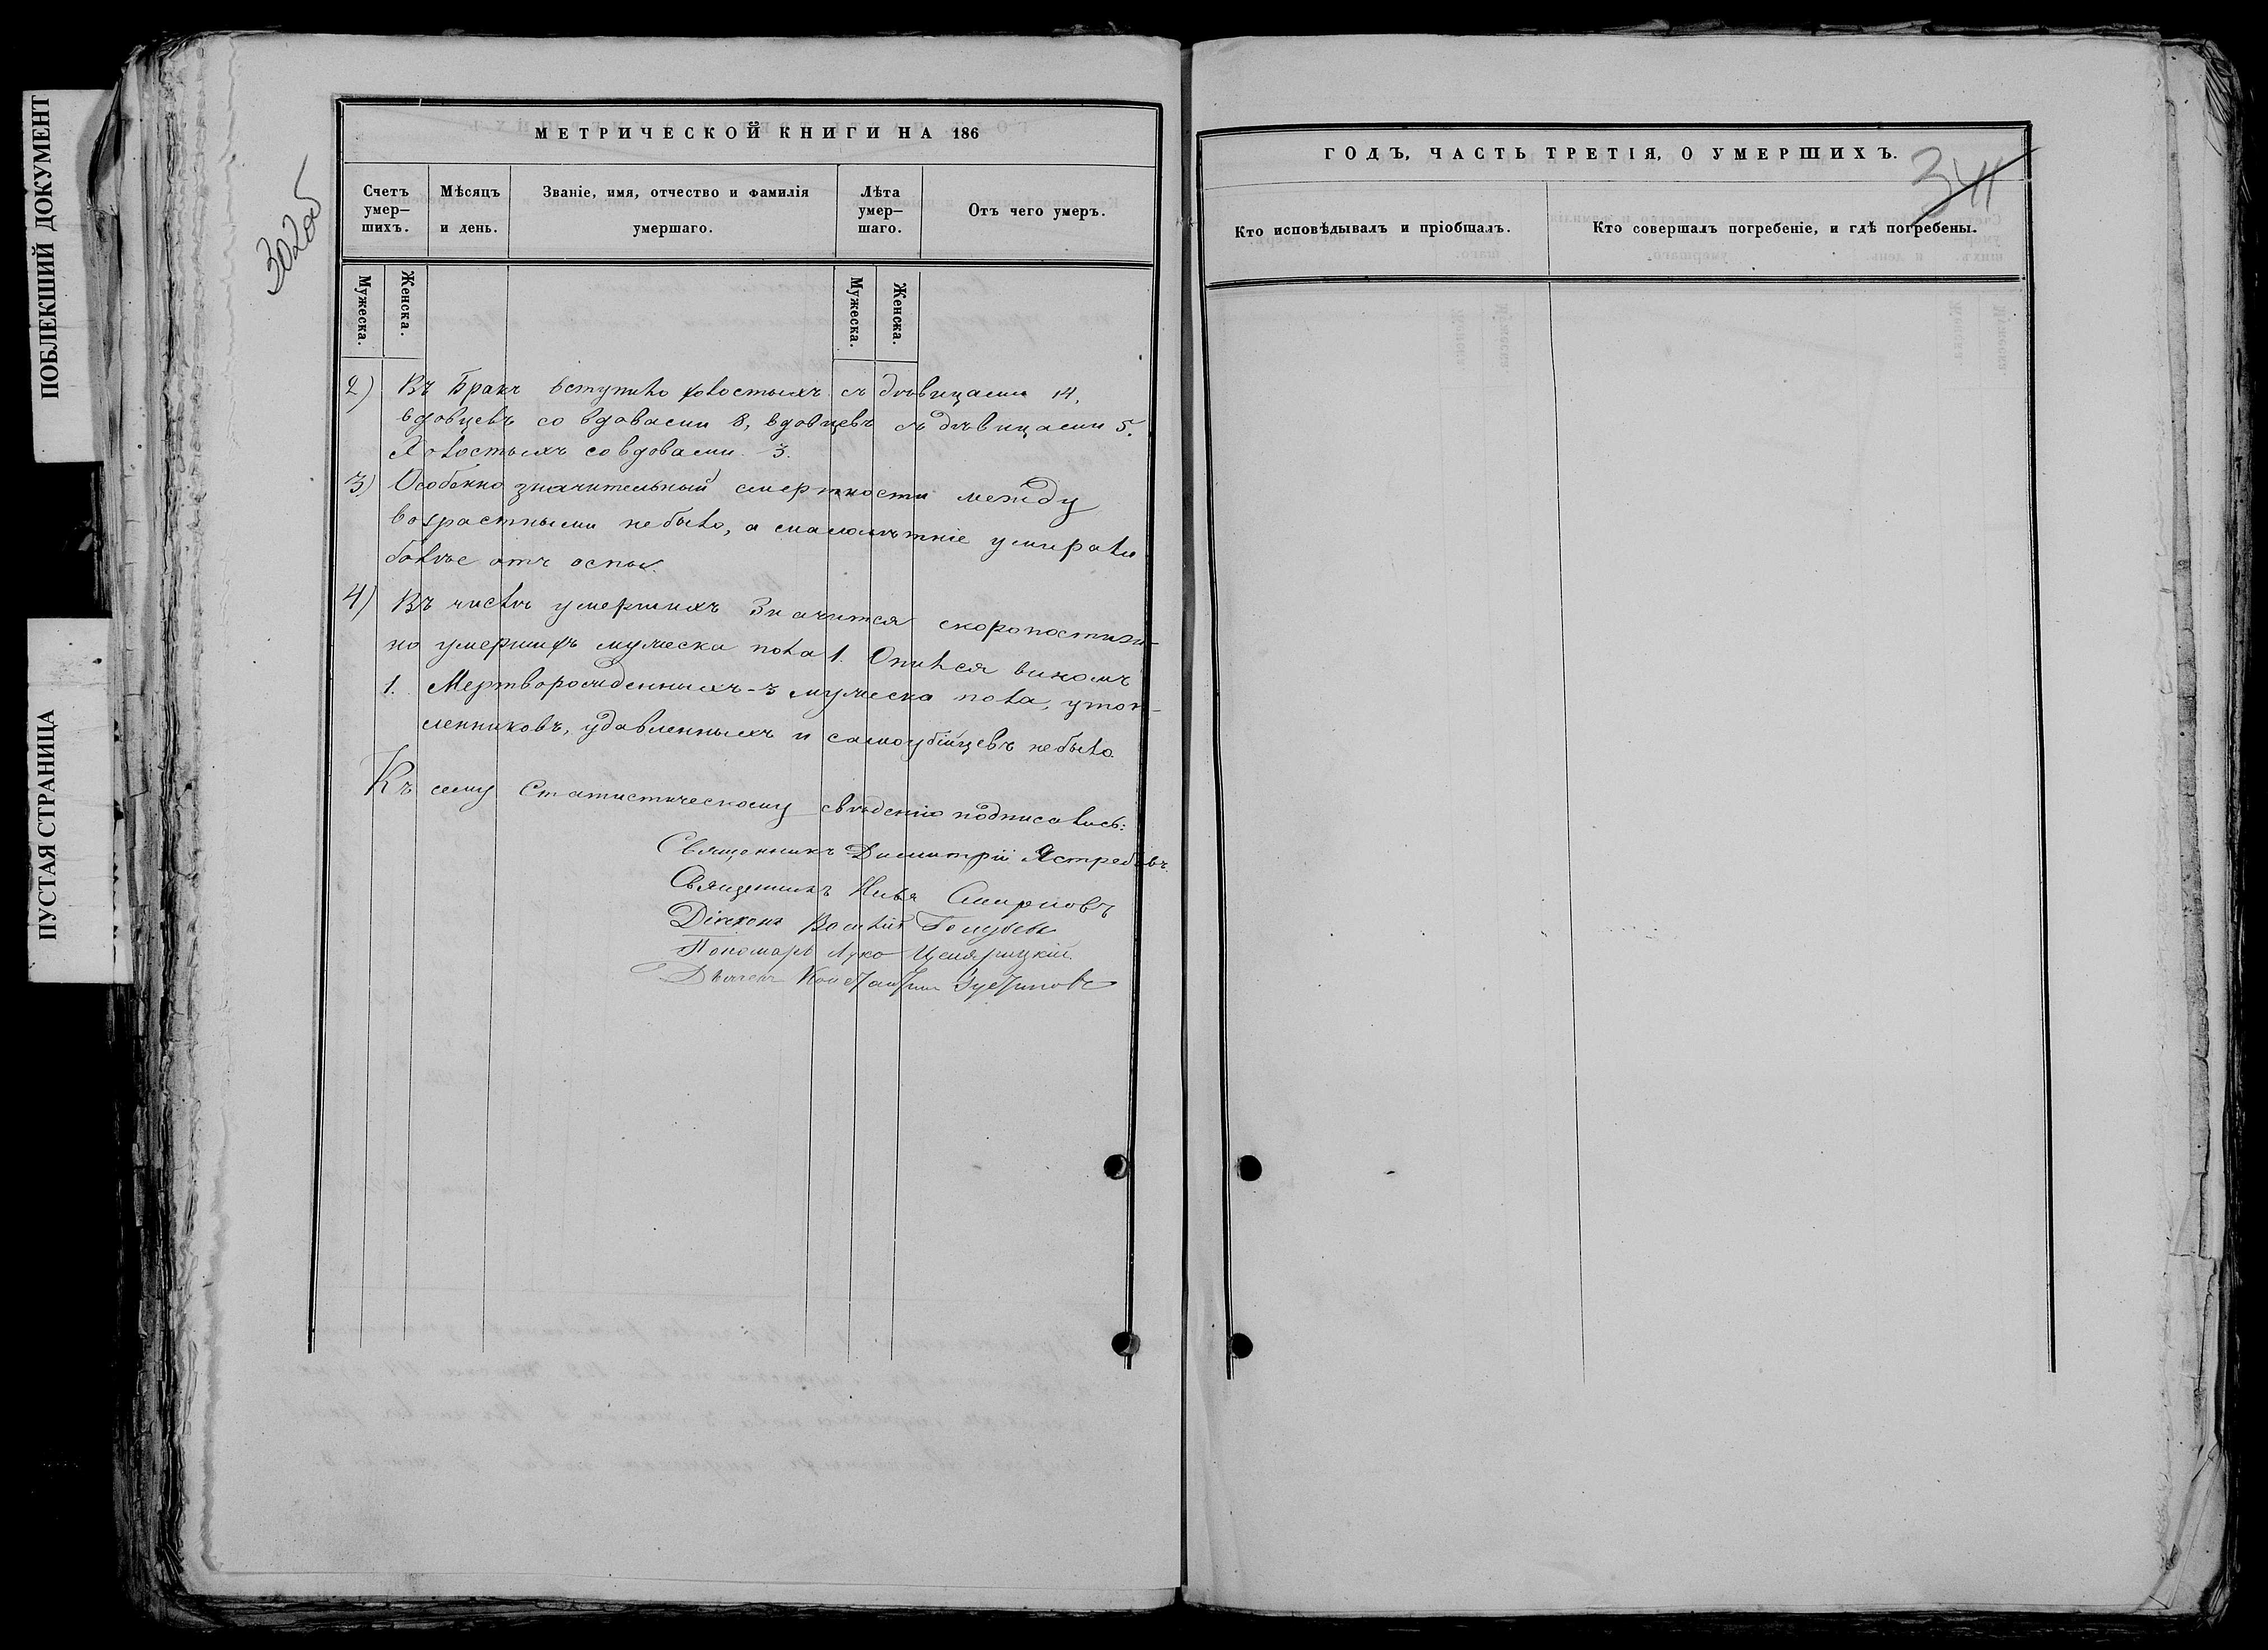 ПОБЛЕКШИЙ ДОКУМЕНТ
ПУСТАЯ СТРАНИЦА
302об
МЕТРИЧЕСКОЙ КНИГИ НА 186
Счетъ умер–шихъ.
Мѣсяцъ и день.
Званіе, имя, отчество и фамилія умершаго.
Лѣта умер–шаго.
Отъ чего умеръ.
Мужеска.
Женска.
Мужеска.
Женска.
2) Въ Бракъ вступило холостыхъ съ дѣвицами 14,
вдовцевъ со вдовами 8, вдовцевъ съ дѣвицами 5.
Холостыхъ со вдовами 3.
3) Особенно значительный смертности между
возрастными не было, а малолѣтніе умирали
болѣе отъ оспы.
4) Въ числѣ умершихъ Значится скоропостиж–
но умершихъ мужеска пола 1. Опился виномъ
1. Мертворожденныхъ мужеска пола, утоп–
ленниковъ, удавленныхъ и самоубійцевъ не было.
Къ сему Статистическому свѣденію подписались:
Священникъ Димитрій Ястребовъ.
Священникъ Илья Смирновъ
Діаконъ Василій Голубевъ
Пономарь Лука
Дьячекъ Константинъ
ГОДЪ, ЧАСТЬ ТРЕТІЯ, О УМЕРШИХЪ.
341
Кто исповѣдывалъ и пріобщалъ.
Кто совершалъ погребеніе, и гдѣ погребены.